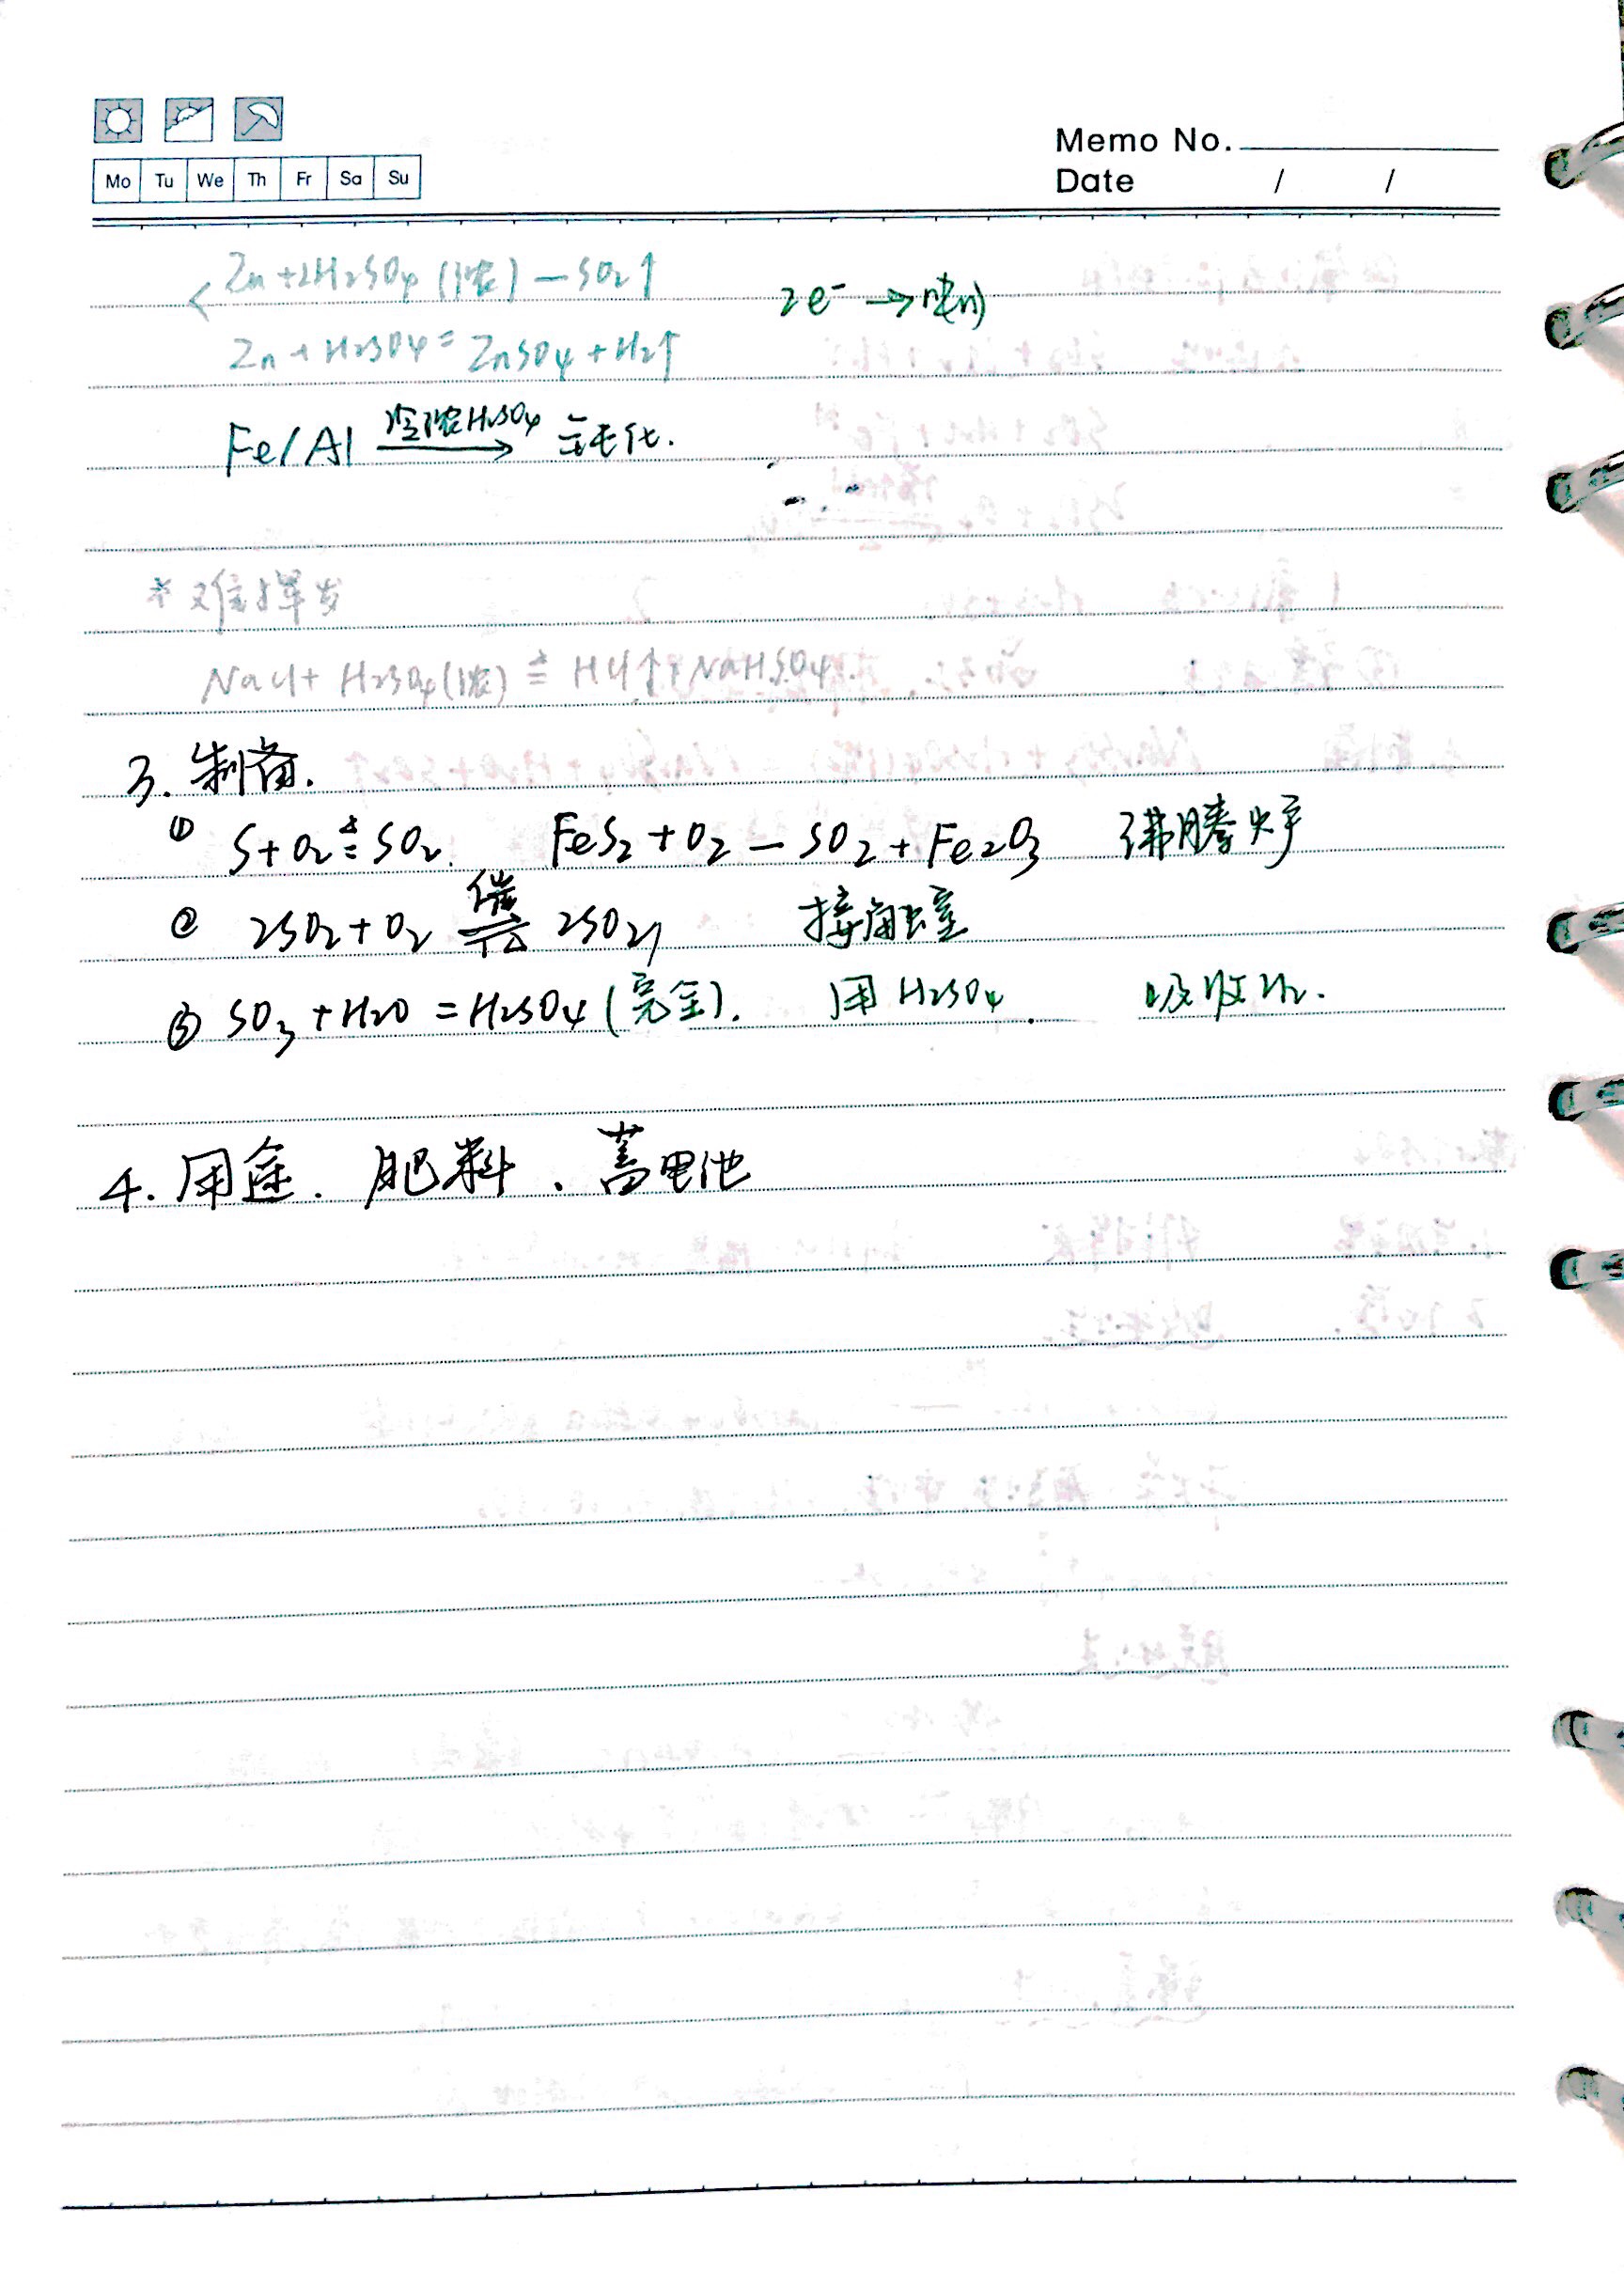 Memo No.
Mo Tu We Th Fr Sa Su
Date / /
Zn + 2H₂SO₄ (浓) — SO₂↑
2e⁻ →
Zn + H₂SO₄ = ZnSO₄ + H₂↑
Fe/Al 冷浓H₂SO₄ → 钝化.
* 难挥发
NaCl + H₂SO₄(浓) ≜ HCl↑ + NaHSO₄.
3. 制备.
① S + O₂ ≜ SO₂. FeS₂ + O₂ — SO₂ + Fe₂O₃ 沸腾炉
② 2SO₂ + O₂ 催 ⇌ △ 2SO₃ 接触室
③ SO₃ + H₂O = H₂SO₄ (完全). 用 H₂SO₄. 吸收
4. 用途. 肥料、蓄电池